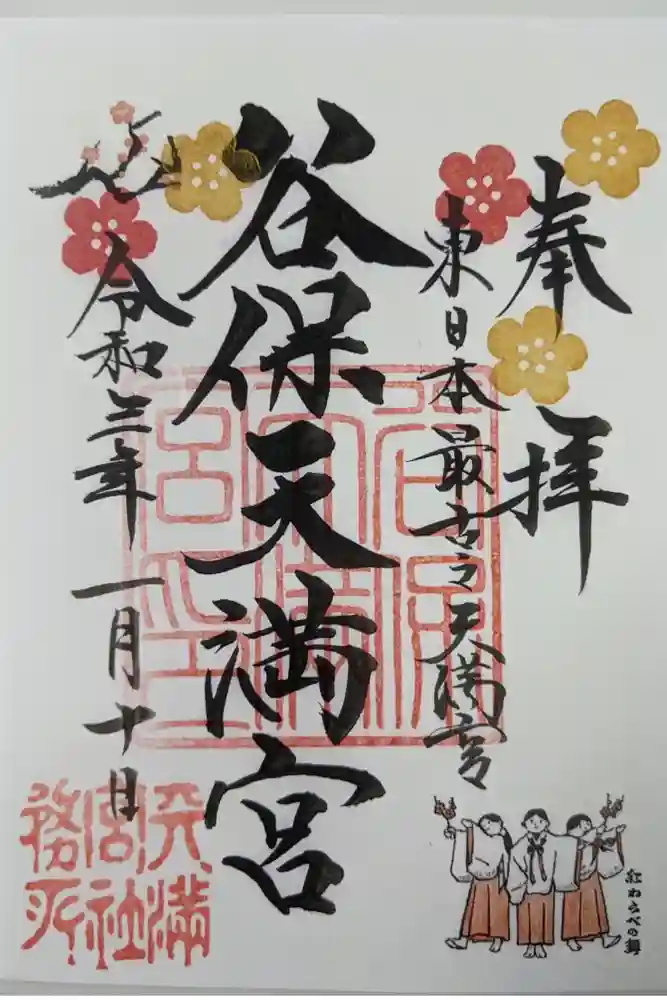 奉拝
東日本最古之天満宮
谷保天満宮
令和三年一月十日
谷保天満宮印
天満宮社務所
紅わらべの舞